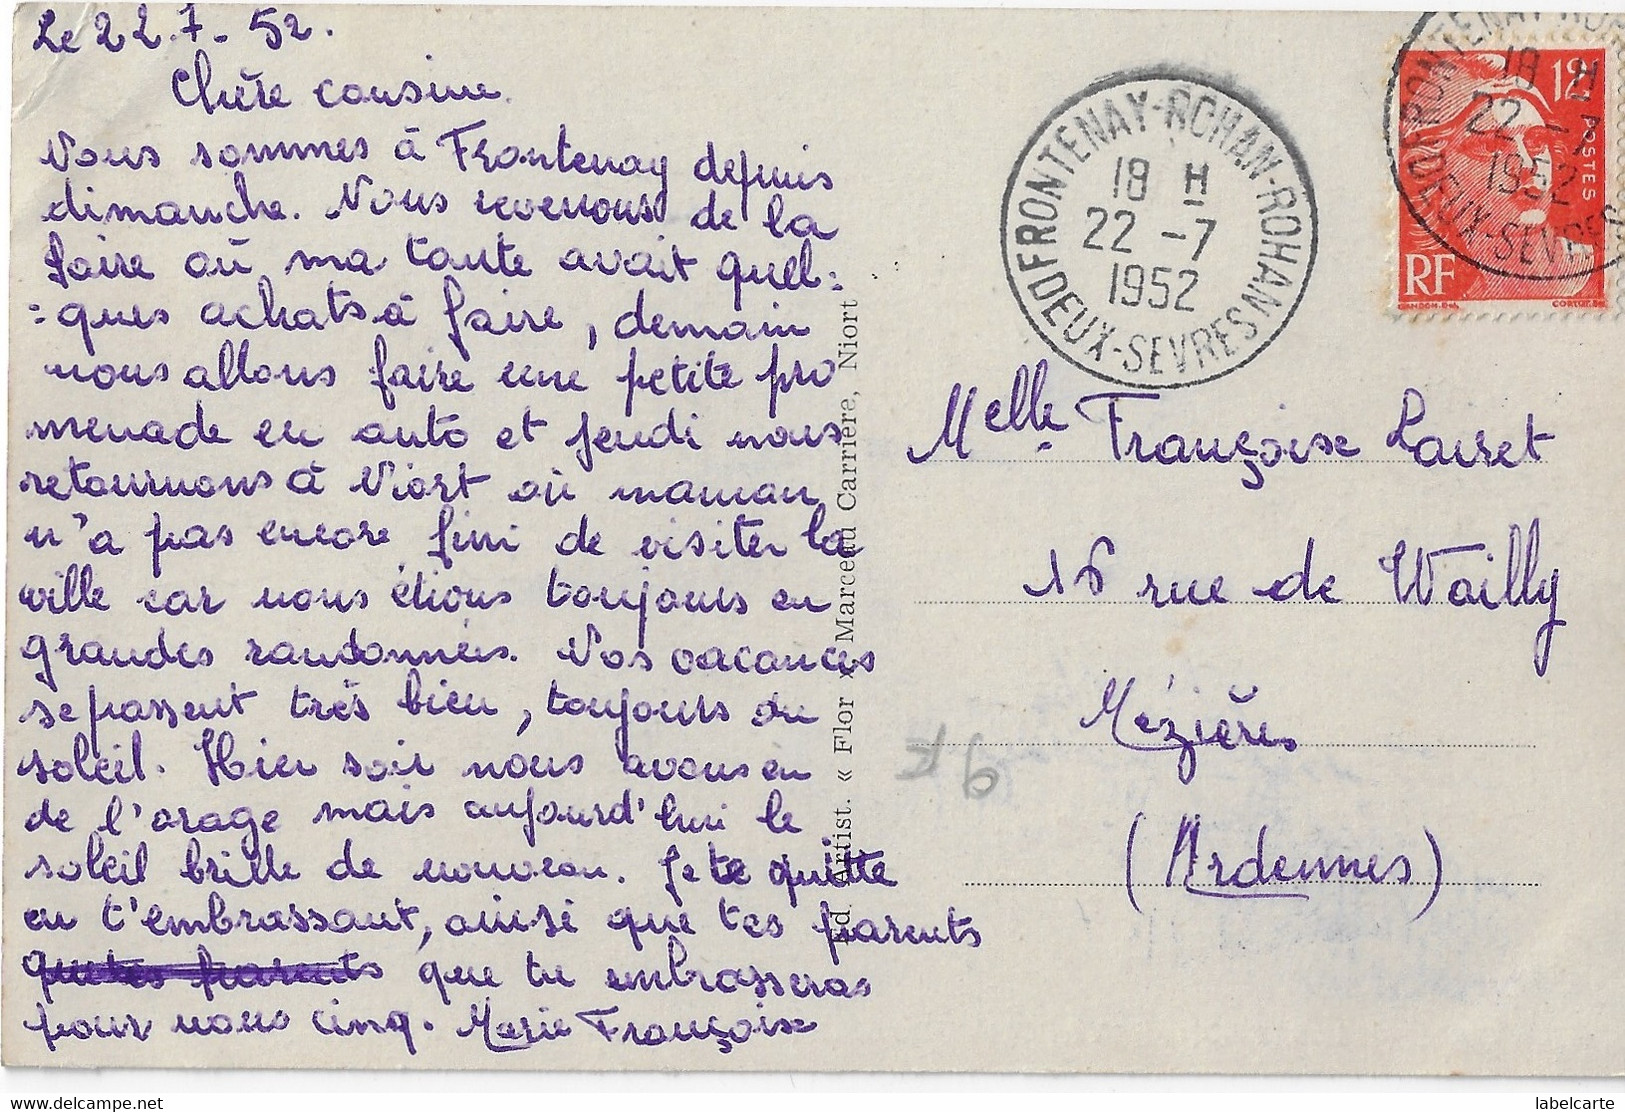 Le 22.7-52.
Chère cousine.
Nous sommes à Frontenay depuis
dimanche. Nous revenons de la
foire où ma tante avait quel=
=ques achats à faire, demain
nous allons faire une petite pro
menade en auto et jeudi nous
retournons à Niort où maman
n'a pas encore fini de visiter la
ville car nous étions toujours en
grandes randonnées. Nos vacances
se passent très bien, toujours du
soleil. Hier soir nous avons eu
de l'orage mais aujourd'hui le
soleil brille de nouveau. Je te quitte
en t'embrassant, ainsi que tes parents
que tes parents que tu embrasseras
pour nous cinq. Marie Françoise
Ed. Artist. « Flor » Marceau Carrière, Niort
FRONTENAY-ROHAN-ROHAN
18 H
22 -7
1952
DEUX-SEVRES
FRONTENAY-ROHAN
18 H
22 -7
1952
DEUX-SEVRES
12F
POSTES
RF
GANDON
CORTOT
Melle Françoise Lairet
16 rue de Wailly
Mézières
(Ardennes)
9 F
www.delcampe.net
labelcarte